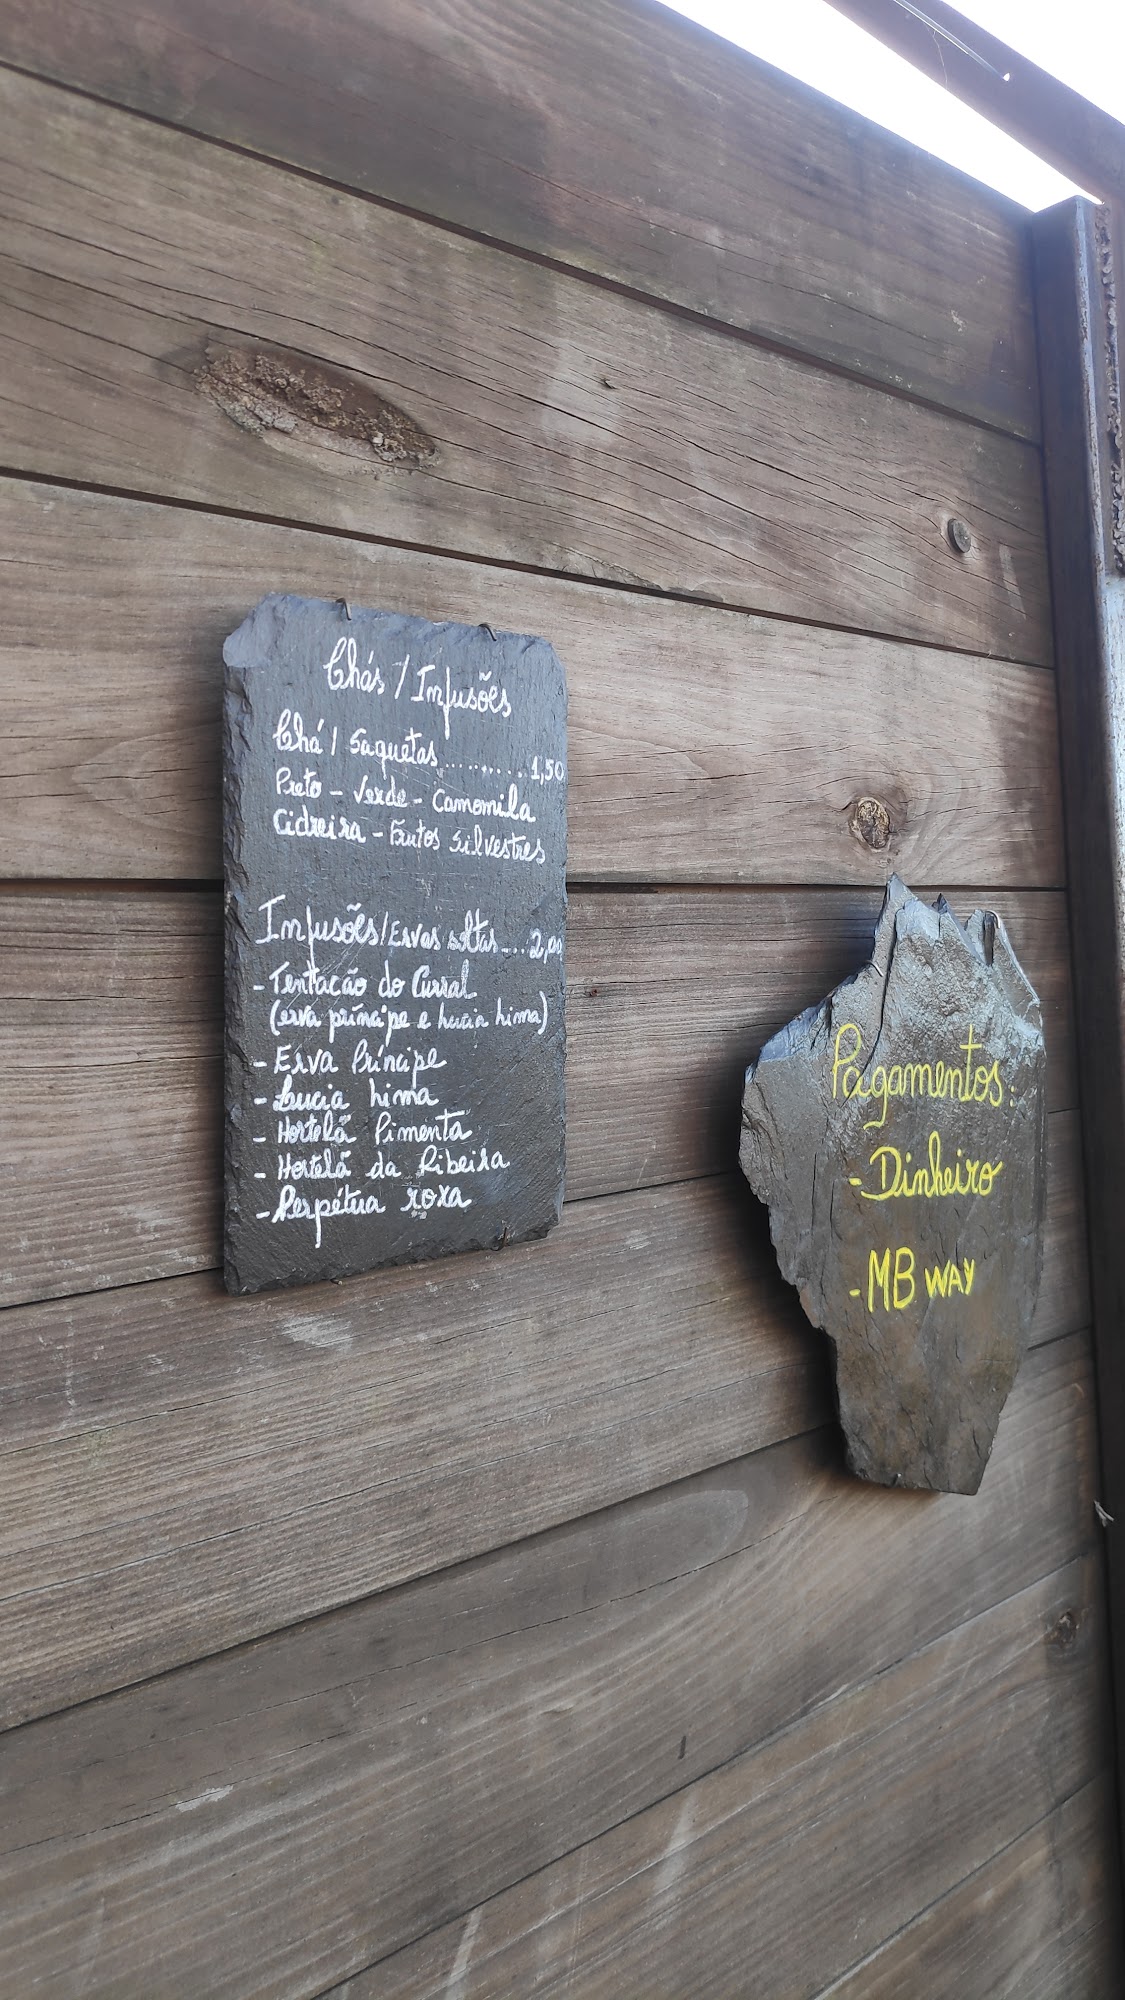 Chás / Infusões
Chá / Saquetas .......... 1,50
Preto - Verde - Camomila
Cidreira - Frutos Silvestres
Infusões/Ervas soltas ... 2,00
- Tentação do Curral
(erva príncipe e lucia lima)
- Erva Príncipe
- Lucia Lima
- Hortelã Pimenta
- Hortelã da Ribeira
- Perpétua roxa
Pagamentos:
- Dinheiro
- MB WAY